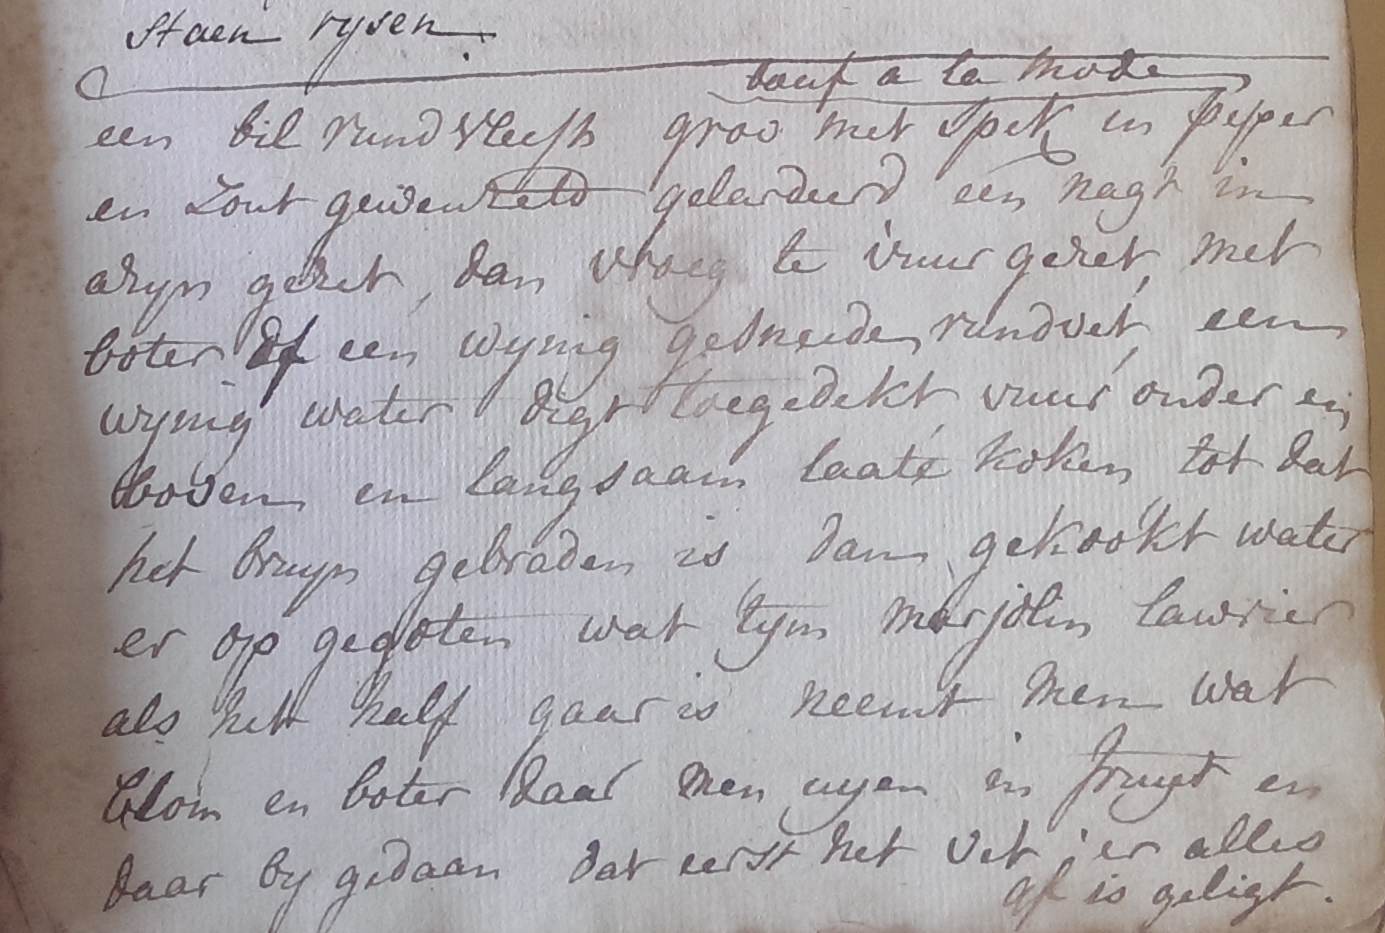 staen rysen.
bouf a la mode
een bil rundvleesh groo met spek in peper
en zout gewenteld gelardeerd een nagt in
azyn gezet, dan vroeg te vuur gezet, met
boter of een wynig gesneide rundvet, een
wynig water digt toegedekt, vuur onder en
boven en langsaam laate koken tot dat
het bruyn gebraden is dan gekookt water
er op gegoten wat tym marjolin lawrier
als het half gaar is neemt men wat
blom en boter daar men uyen in fruyt en
daar by gedaan dat eerst het vet er alles
af is geligt.